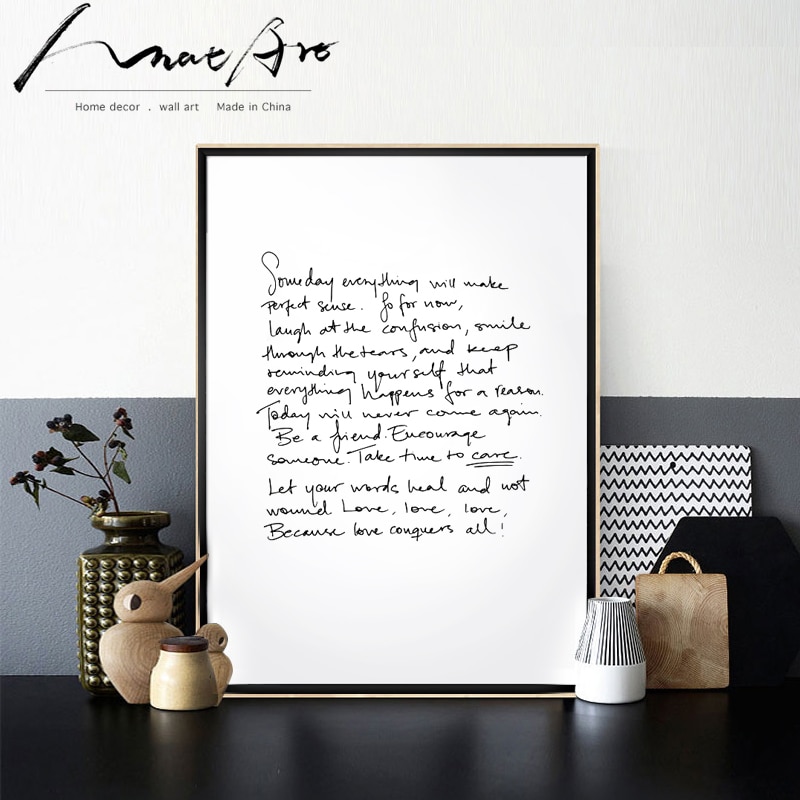 Home decor . wall art Made in China
Someday everything will make
perfect sense. So for now,
laugh at the confusion, smile
through the tears, and keep
reminding yourself that
everything happens for a reason.
Today will never come again.
Be a friend. Encourage
someone. Take time to care.
Let your words heal and not
wound. Love, love, love,
Because love conquers all!